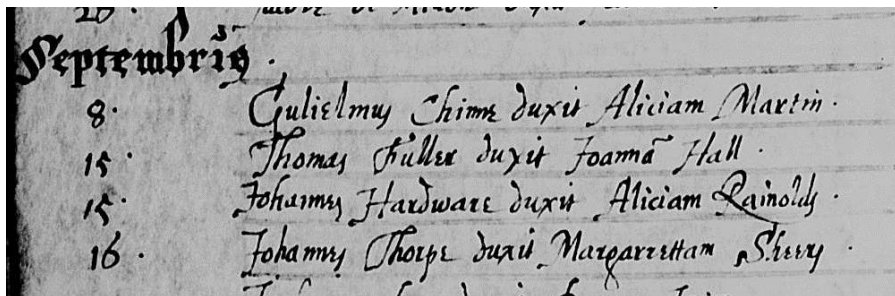 Septembris.
8. Gulielmus Chinne duxit Aliciam Martin.
15. Thomas Fuller duxit Joannā Hall.
15. Johannes Hardware duxit Aliciam Rainolds.
16. Johannes Thorpe duxit Margarrettam Sheers.